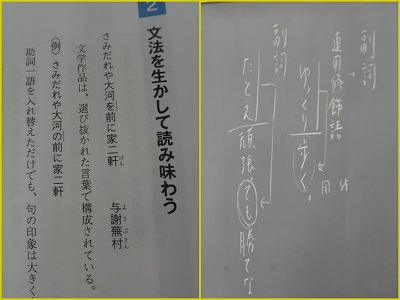 2
文法を生かして読み味わう
さみだれや大河を前に家二軒 与謝蕪村
けん
よさぶそん
文学作品は、選び抜かれた言葉で構成されている。
〈例〉さみだれや大河の前に家二軒
助詞一語を入れ替えただけでも、句の印象は大きく
副詞
連用修飾語
ゆっくり歩く。
用
副詞
たとえ頑張っても勝てな